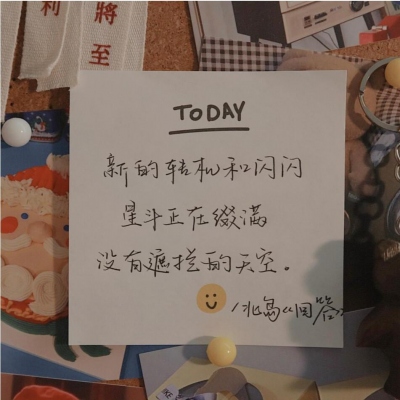 利
將至
TODAY
新的转机和闪闪
星斗正在缀满
没有遮拦的天空。
/北岛《回答》